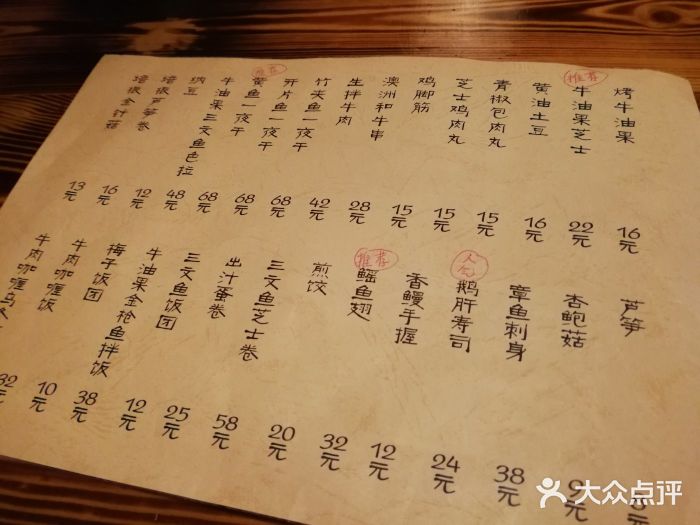 烤牛油果 16元
推荐
牛油果芝士 22元
黄油土豆 16元
青椒包肉丸 15元
芝士鸡肉丸 15元
鸡脚筋 15元
澳洲和牛串 28元
生拌牛肉 42元
竹夹鱼一夜干 68元
开片鱼一夜干 68元
推荐
黄鱼一夜干 68元
牛油果三文鱼色拉 48元
纳豆 12元
培根芦笋卷 16元
培根金针菇 13元
芦笋
杏鲍菇 9元
章鱼刺身 38元
人气
鹅肝寿司 24元
香鳗手握 12元
推荐
鳐鱼翅 32元
煎饺 20元
三文鱼芝士卷 58元
出汁蛋卷 25元
三文鱼饭团 12元
牛油果金枪鱼拌饭 38元
梅干饭团 10元
牛肉咖喱饭 32元
牛肉咖喱乌
大众点评